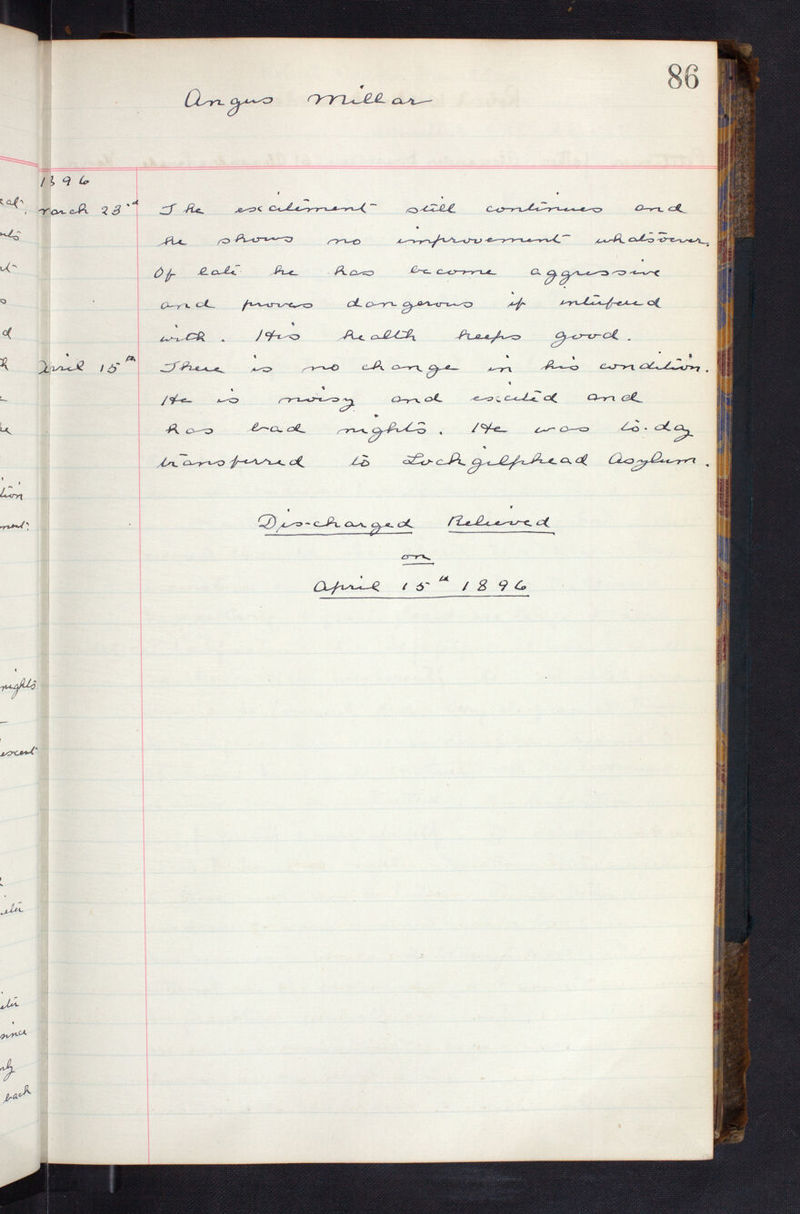 86
Angus Millar
1896
March 23rd The excitement still continues and
he shows no improvement whatsoever.
Of late he has become aggressive
and proves dangerous if interfered
with. His health keeps good.
April 15th There is no change in his condition.
He is noisy and excited and
has bad nights. He was to-day
transferred to Lochgilphead Asylum.
Discharged Relieved
on
April 15th 1896
nights
since
back